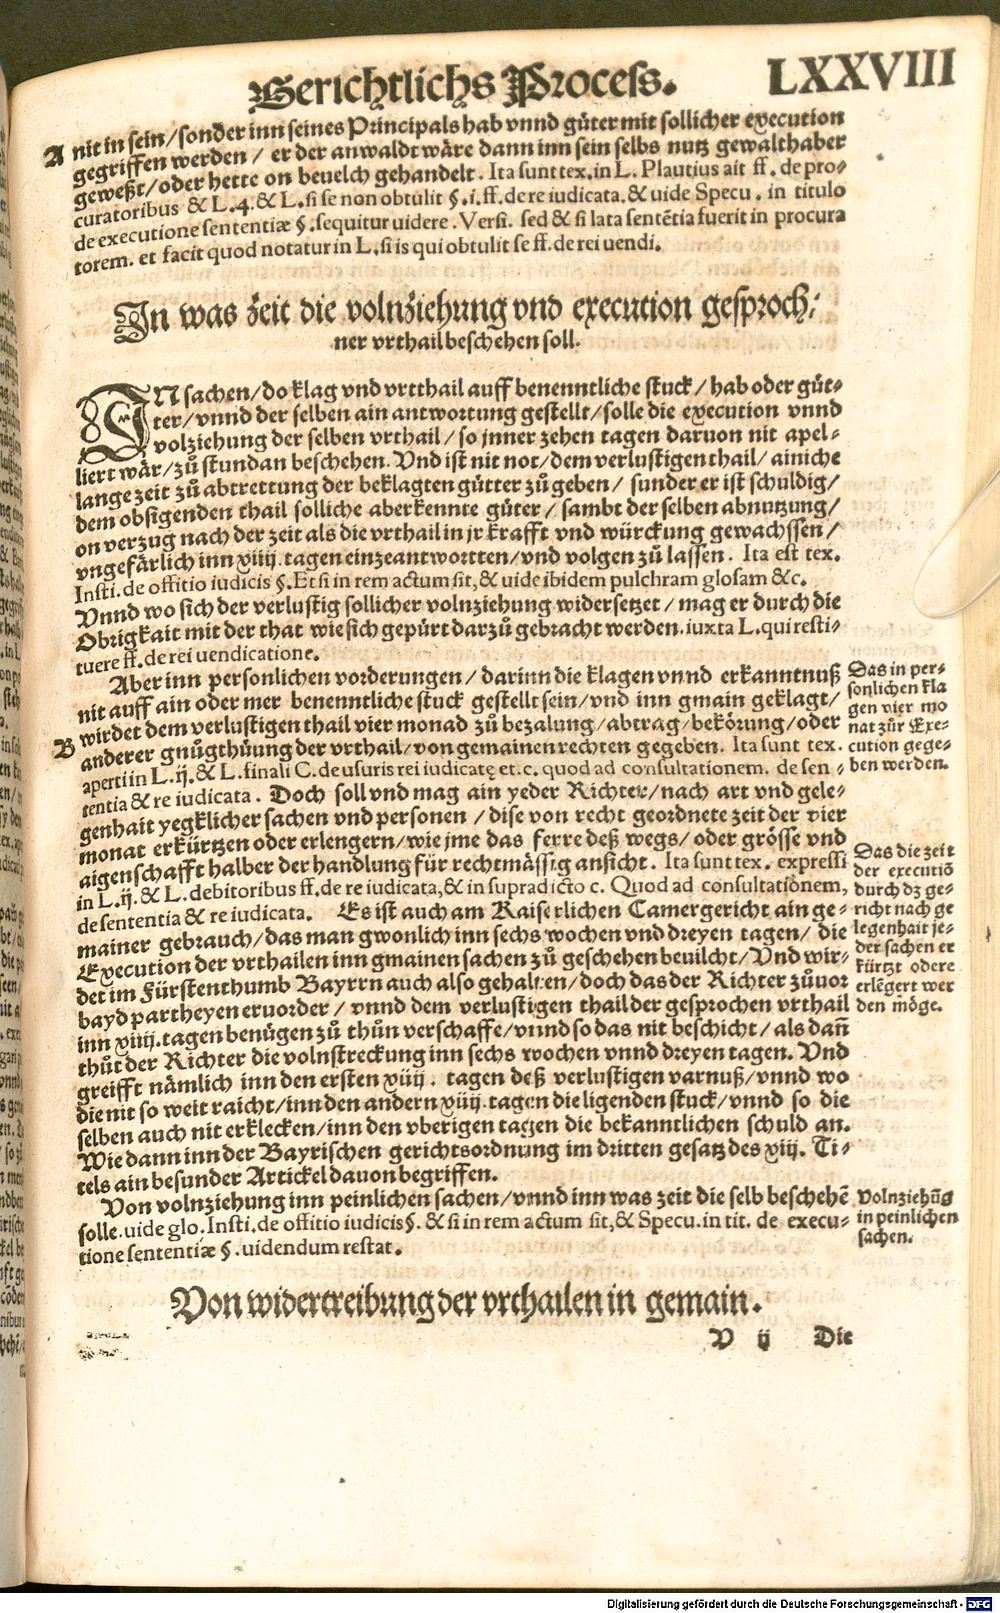 Gerichtlichs Process. LXXVIII
A nit in sein/sonder inn seines Principals hab vnnd gůter mit sollicher execution
gegriffen werden / er der anwaldt wäre dann inn sein selbs nutz gewalthaber
geweßt/oder hette on beuelch gehandelt. Ita sunt tex. in L. Plautius ait ff. de pro-
curatoribus & L.4.& L. si se non obtulit §.i.ff.de re iudicata.& uide Specu. in titulo
de executione sententiæ §.sequitur uidere. Versi. sed & si lata sentētia fuerit in procura
torem. et facit quod notatur in L. si is qui obtulit se ff. de rei uendi.
In was zeit die volnziehung vnd execution gesproch-
ner vrthail beschehen soll.
IN sachen/do klag vnd vrtthail auff benenntliche stuck/ hab oder güt-
ter/vnnd der selben ain antwortung gestellt/solle die execution vnnd
volziehung der selben vrthail/so jnner zehen tagen daruon nit apel-
liert wär/zů stundan beschehen. Vnd ist nit not/dem verlustigen thail/ainiche
lange zeit zů abtrettung der beklagten gütter zů geben/ sunder er ist schuldig/
dem obsigenden thail solliche aberkennte güter/ sambt der selben abnutzung/
on verzug nach der zeit als die vrthail in jr krafft vnd würckung gewachssen/
vngefärlich inn xiiij. tagen einzeantwortten/vnd volgen zů lassen. Ita est tex.
Insti. de offitio iudicis §. Et si in rem actum sit,& uide ibidem pulchram glosam &c.
Vnnd wo sich der verlustig sollicher volnziehung widersetzet/mag er durch die
Obrigkait mit der that wie sich gepürt darzů gebracht werden. iuxta L. qui resti-
tuere ff. de rei uendicatione.
Aber inn personlichen vorderungen/ darinn die klagen vnnd erkanntnuß
nit auff ain oder mer benenntliche stuck gestellt sein/vnd inn gmain geklagt/
wirdet dem verlustigen thail vier monad zů bezalung/abtrag/bekörung/oder
B anderer gnůgthůung der vrthail/von gemainen rechten gegeben. Ita sunt tex.
aperti in L. ij. & L. finali C. de usuris rei iudicatę et.c. quod ad consultationem. de sen-
tentia & re iudicata. Doch soll vnd mag ain yeder Richter/nach art vnd gele-
genhait yegklicher sachen vnd personen / dise von recht geordnete zeit der vier
monat erkürtzen oder erlengern/wie jme das ferre deß wegs/oder grösse vnd
aigenschafft halber der handlung für rechtmässig ansicht. Ita sunt tex. expressi
in L. ij. & L. debitoribus ff. de re iudicata,& in supradicto c. Quod ad consultationem,
de sententia & re iudicata. Es ist auch am Kaiserlichen Camergericht ain ge-
mainer gebrauch/das man gwonlich inn sechs wochen vnd dreyen tagen/ die
Execution der vrthailen inn gmainen sachen zů geschehen beuilcht/Vnd wir-
det im Fürstenthumb Bayrrn auch also gehalten/doch das der Richter zůuor
bayd partheyen eruorder / vnnd dem verlustigen thail der gesprochen vrthail
inn xiiij.tagen benügen zů thůn verschaffe/vnnd so das nit beschicht/als dañ
thůt der Richter die volnstreckung inn sechs wochen vnnd dreyen tagen. Vnd
greifft nämlich inn den ersten xiiij. tagen deß verlustigen varnuß/vnnd wo
die nit so weit raicht/inn den andern xiiij.tagen die ligenden stuck/vnnd so die
selben auch nit erklecken/inn den vberigen tagen die bekanntlichen schuld an.
Wie dann inn der Bayrischen gerichtsordnung im dritten gesatz des xiij. Ti-
tels ain besunder Artickel dauon begriffen.
Von volnziehung inn peinlichen sachen/vnnd inn was zeit die selb beschehē
solle. uide glo. Insti. de offitio iudicis §. & si in rem actum sit,& Specu. in tit. de execu-
tione sententiæ §. uidendum restat.
Das in per-
sonlichen kla
gen vier mo
nat zůr Exe-
cution gege-
ben werden.
Das die zeit
der executiō
durch dz ge-
richt nach ge
legenhait je-
der sachen er
kürtzt odere
erlēgert wer
den möge.
Volnziehūg
in peinlichen
sachen.
Von widertreibung der vrthailen in gemain.
V ij Die
Digitalisierung gefördert durch die Deutsche Forschungsgemeinschaft - DFG